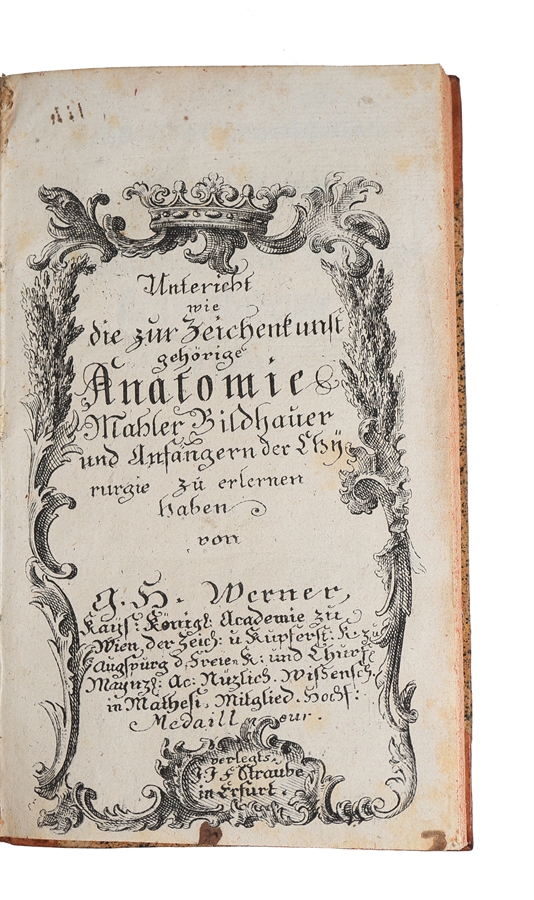 Untericht
wie
die zur Zeichenkunst
gehörige
Anatomie
Mahler Bildhauer
und Anfängern der Chÿ
rurgie zu erlernen
haben
von
J. H. Werner
Kays: Königl: Academie zu
Wien, der Zeich: u Kupferst: K. zu
Augspurg d, Freien K: und Churf:
Maynzl: Ac: Nüzlich. Wißensch.
in Mathesi, Mitglied. Hochf:
Medailleur.
verlegts
J F Straube
in Erfurt.